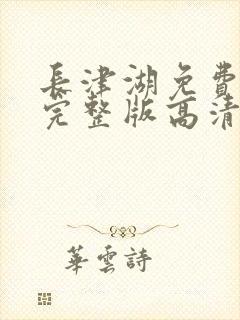 長津湖免費
完整版高清
華雲詩